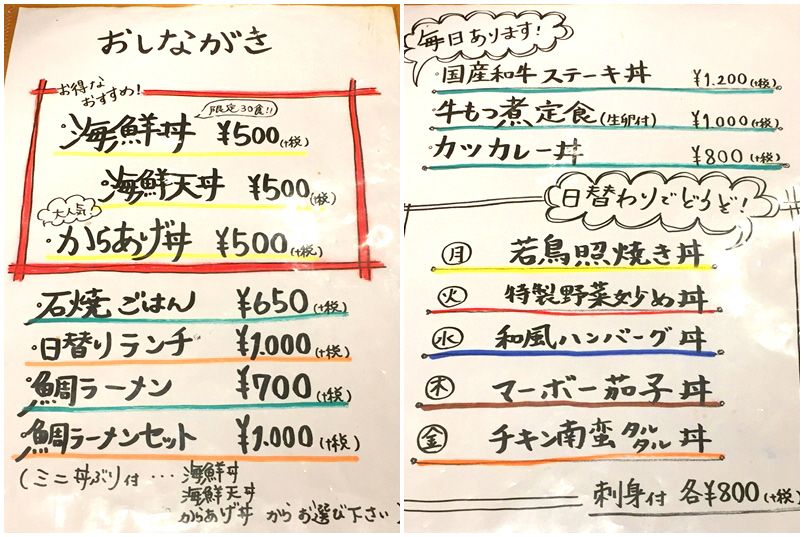 おしながき
お得な
おすすめ!
限定30食!!
・海鮮丼 ¥500(+税)
海鮮天丼 ¥500(+税)
大人気!
・からあげ丼 ¥500(+税)
・石焼ごはん ¥650(+税)
・日替りランチ ¥1.000(+税)
・鯛ラーメン ¥700(+税)
・鯛ラーメンセット ¥1.000(+税)
(ミニ丼ぶり付…海鮮丼
海鮮天丼
からあげ丼 からお選び下さい)
毎日あります!
・国産和牛ステーキ丼 ¥1,200(+税)
・牛もつ煮定食(生卵付) ¥1,000(+税)
・カツカレー丼 ¥800(+税)
日替わりでどうぞ!
月 若鳥照焼き丼
火 特製野菜炒め丼
水 和風ハンバーグ丼
木 マーボー茄子丼
金 チキン南蛮タルタル丼
刺身付 各¥800(+税)